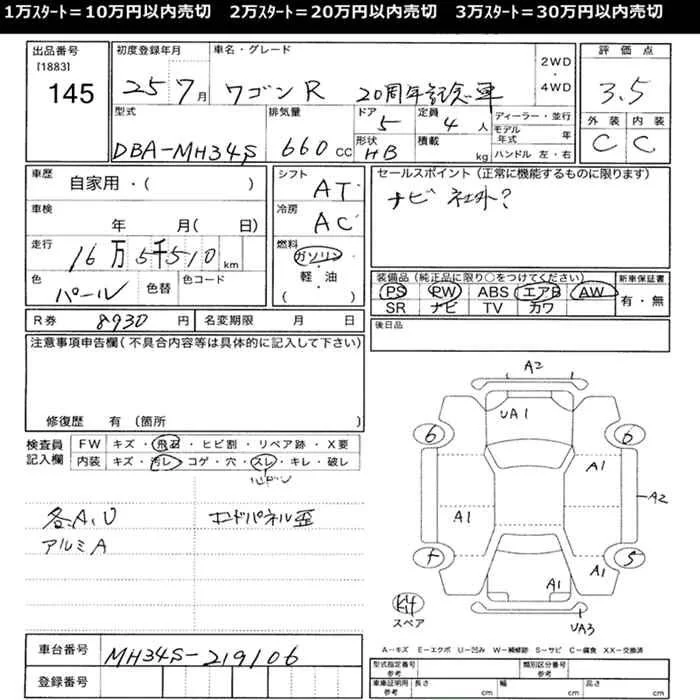 1万スタート＝10万円以内売切　2万スタート＝20万円以内売切　3万スタート＝30万円以内売切
出品番号 [1883] 145
初度登録年月 25 7月
車名・グレード ワゴンR 20周年記念車
2WD・4WD
評価点 3.5
外装 C 内装 C
型式 DBA-MH34S
排気量 660 cc
ドア 5
形状 HB
定員 4人
積載 kg
ディーラー・並行
モデル年式 年
ハンドル 左・右
車歴 自家用・( )
車検 年 月( 日)
走行 16万5千510 km
色 パール 色替 色コード
シフト AT
冷房 AC
燃料 ガソリン・軽・油 ( )
セールスポイント（正常に機能するものに限ります）
ナビ 社外？
装備品（純正品に限り○をつけてください）
PS PW ABS エアB AW
SR ナビ TV カワ
新車保証書 有・無
R券 8930 円 名変期限 月 日
後日品
注意事項申告欄（不具合内容等は具体的に記入して下さい）
修復歴 有（箇所 ）
検査員記入欄
FW キズ・飛石・ヒビ割・リペア跡・X要
内装 キズ・汚レ・コゲ・穴・スレ・キレ・破レ
各A、U
アルミA
エンドパネル歪
A2
UA1
6 6
A1
A2
A1
5
A1
A1
UA3
スペア
A－キズ E－エクボ U－凹み W－補修跡 S－サビ C－腐食 XX－交換済
車台番号 MH34S-219106
登録番号
型式指定番号 参考 類別区分番号 参考
車庫証明用 参考 長さ cm 幅 cm 高さ cm